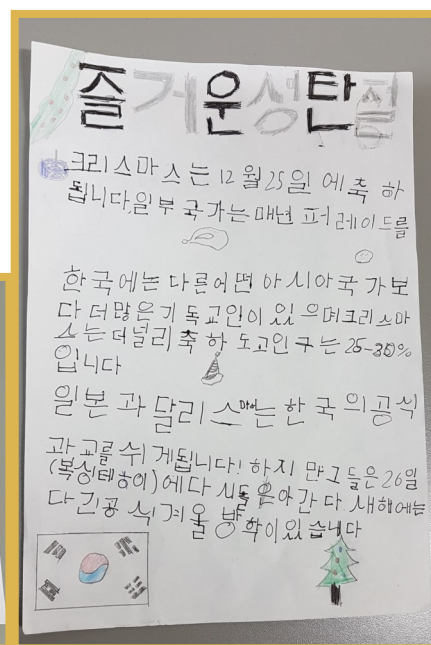 즐거운성탄절
크리스마스는 12월25일 에축 하
됩니다일부 국가는 매년 퍼레이드를
한국에는 다른어떤 아시아국가보
다 더많은기독교인이 있으며크리스마
스는더널리축하 도고인구는 25-30%
입니다
일본과달리스마스는 한국의공식
과 교를 쉬게됩니다! 하지 만그들은 26일
(복싱테하이)에다시돌은아간다. 새해에는
다긴공식겨울 방학이있습니다